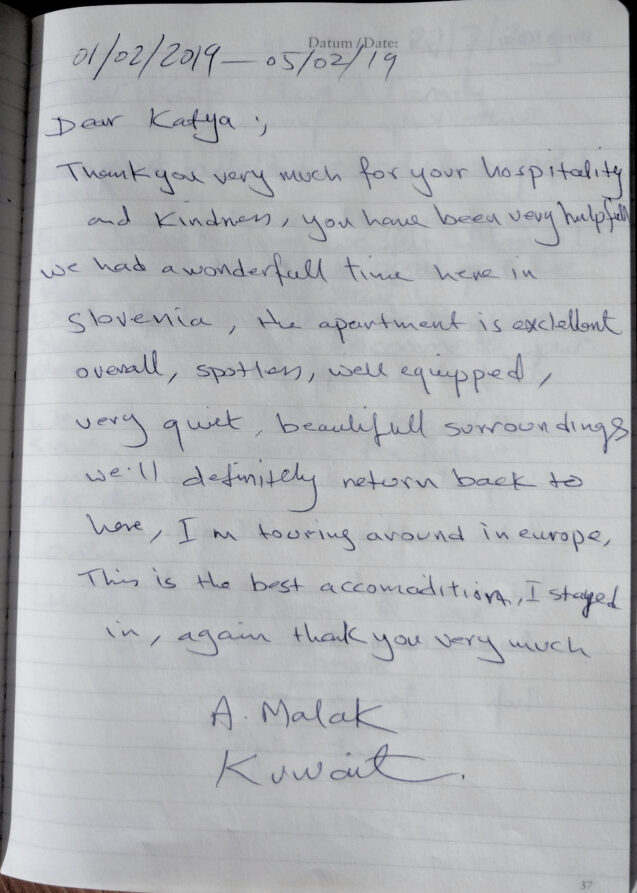 Datum / Date:
01/02/2019 — 05/02/19
Dear Katya :,
Thank you very much for your hospitality
and Kindness, you have been very helpfull
we had a wonderfull time here in
Slovenia, the apartment is exclellent
overall, spotless, well equipped,
very quiet, beautifull surroundings
we'll definitely return back to
here, I m touring around in europe,
This is the best accomadition, I stayed
in, again thank you very much
A. Malak
Kuwait.
37